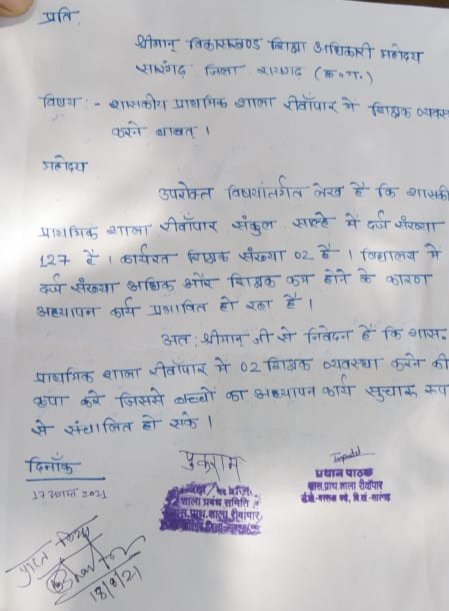 प्रति,
श्रीमान् विकासखण्ड शिक्षा अधिकारी महोदय
सारंगढ़ जिला रायगढ़ (छ.ग.)
विषय :- शासकीय प्राथमिक शाला रीवाँपार में शिक्षक व्यवस्
करने बाबत् ।
महोदय
उपरोक्त विषयांतर्गत लेख है कि शासकी
प्राथमिक शाला रीवाँपार संकुल साल्हे में दर्ज संख्या
127 है । कार्यरत शिक्षक संख्या 02 है । विद्यालय में
दर्ज संख्या अधिक और शिक्षक कम होने के कारण
अध्यापन कार्य प्रभावित हो रहा है ।
अतः श्रीमान् जी से निवेदन है कि शास.
प्राथमिक शाला रीवाँपार में 02 शिक्षक व्यवस्था करने की
कृपा करें जिससे बच्चों का अध्यापन कार्य सुचारू रूप
से संचालित हो सके ।
दिनाँक
17 अगस्त 2021
शाला प्रबंध समिति
शास.प्राथ.शाला रीवांपार,
प्रधान पाठक
शास.प्राथ.शाला रीवांपार
प्राप्त किया
18/8/21